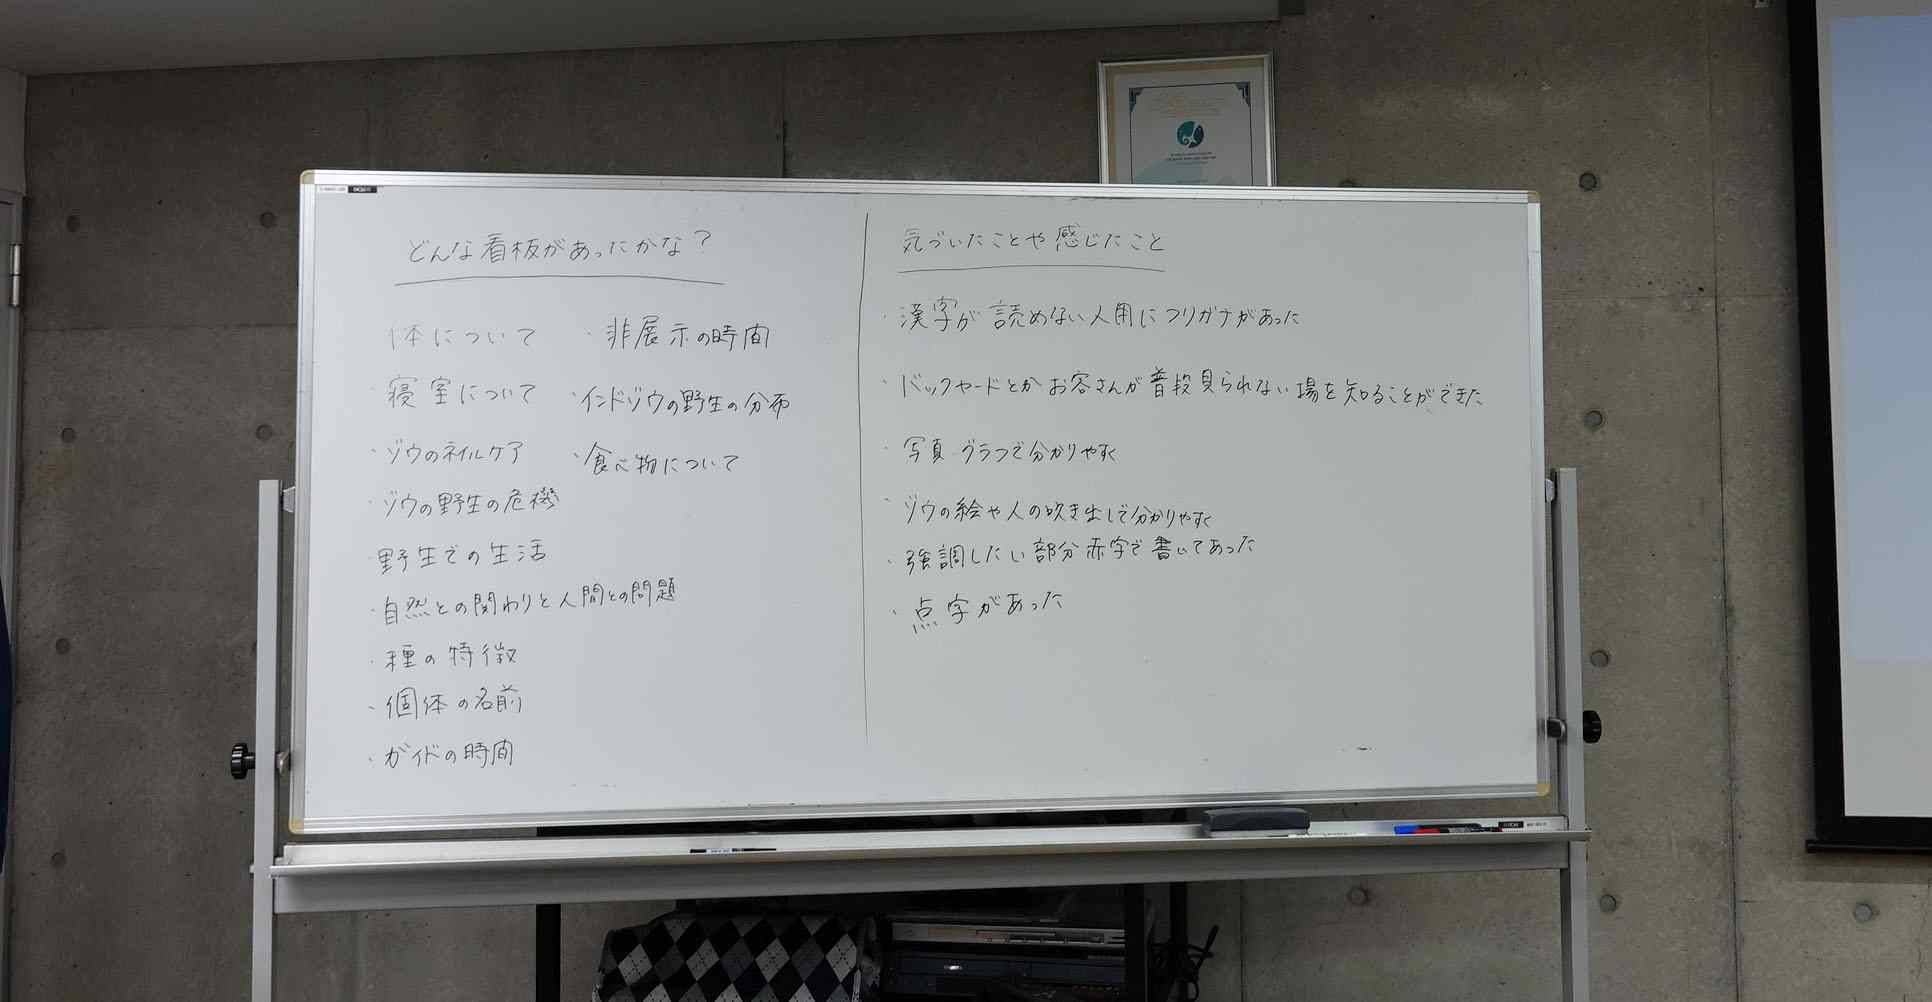 どんな看板があったかな？
体について
・寝室について
・ゾウのネイルケア
・ゾウの野生の危機
・野生での生活
・自然との関わりと人間との問題
・種の特徴
・個体の名前
・ガイドの時間
・非展示の時間
・インドゾウの野生の分布
・食べ物について
気づいたことや感じたこと
・漢字が読めない人用にフリガナがあった
・バックヤードとかお客さんが普段見られない場を知ることができた
・写真・グラフで分かりやすく
・ゾウの絵や人の吹き出しで分かりやすく
・強調したい部分赤字で書いてあった
・点字があった